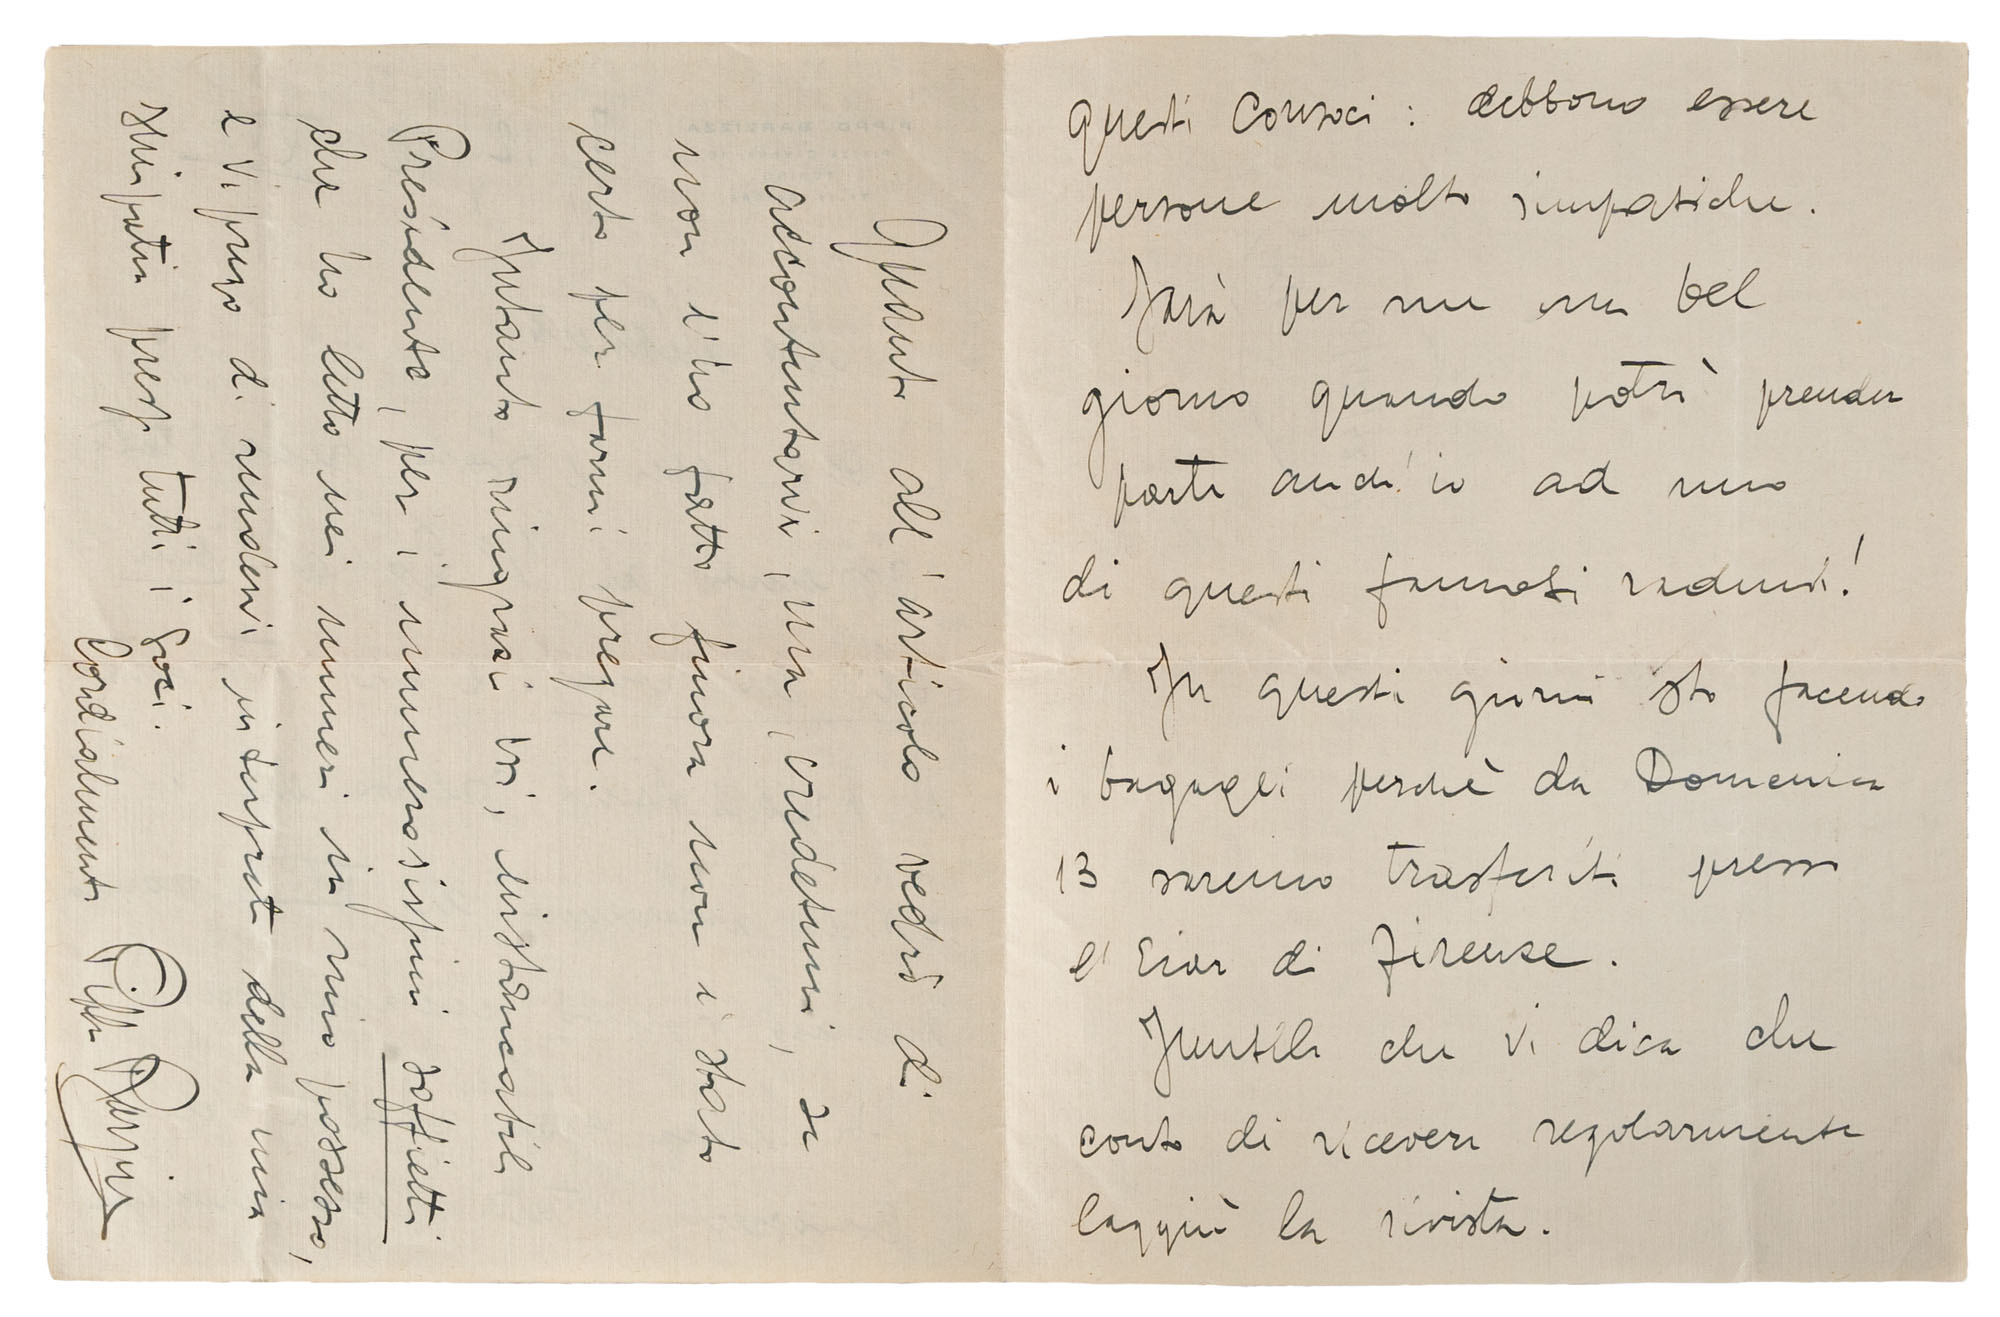 questi Consoci : debbono essere
persone molto simpatiche.
Sarà per me un bel
giorno quando potrò prender
parte anch'io ad uno
di questi famosi raduni!
In questi giorni sto facendo
i bagagli perchè da Domenica
13 saremo trasferiti presso
l'Eiar di Firenze.
Inutile che Vi dica che
conto di ricevere regolarmente
laggiù la rivista.
Quanto all'articolo vedrò di
accontentarvi, ma, credetemi, se
non l'ho fatto finora non è stato
certo per farmi pregare.
Intanto ringraziovi, instancabile
Presidente, per i numerosissimi soffietti
che ho letto nei numeri in mio possesso,
e Vi prego di rendervi interprete della mia
simpatia presso tutti i soci.
Cordialmente Pippo Barzizza
PIPPO BARZIZZA